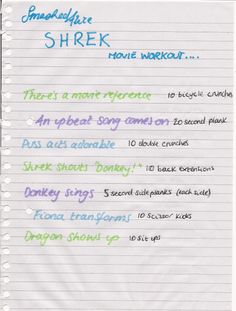 Smashed
SHREK
MOVIE WORKOUT....
There's a movie reference 10 bicycle crunches
An upbeat song comes on 20 second plank
Puss acts adorable 10 double crunches
Shrek shouts "Donkey!" 10 back extentions
Donkey sings 5 second side planks (each side)
Fiona transforms 10 scissor kicks
Dragon shows up 10 sit ups